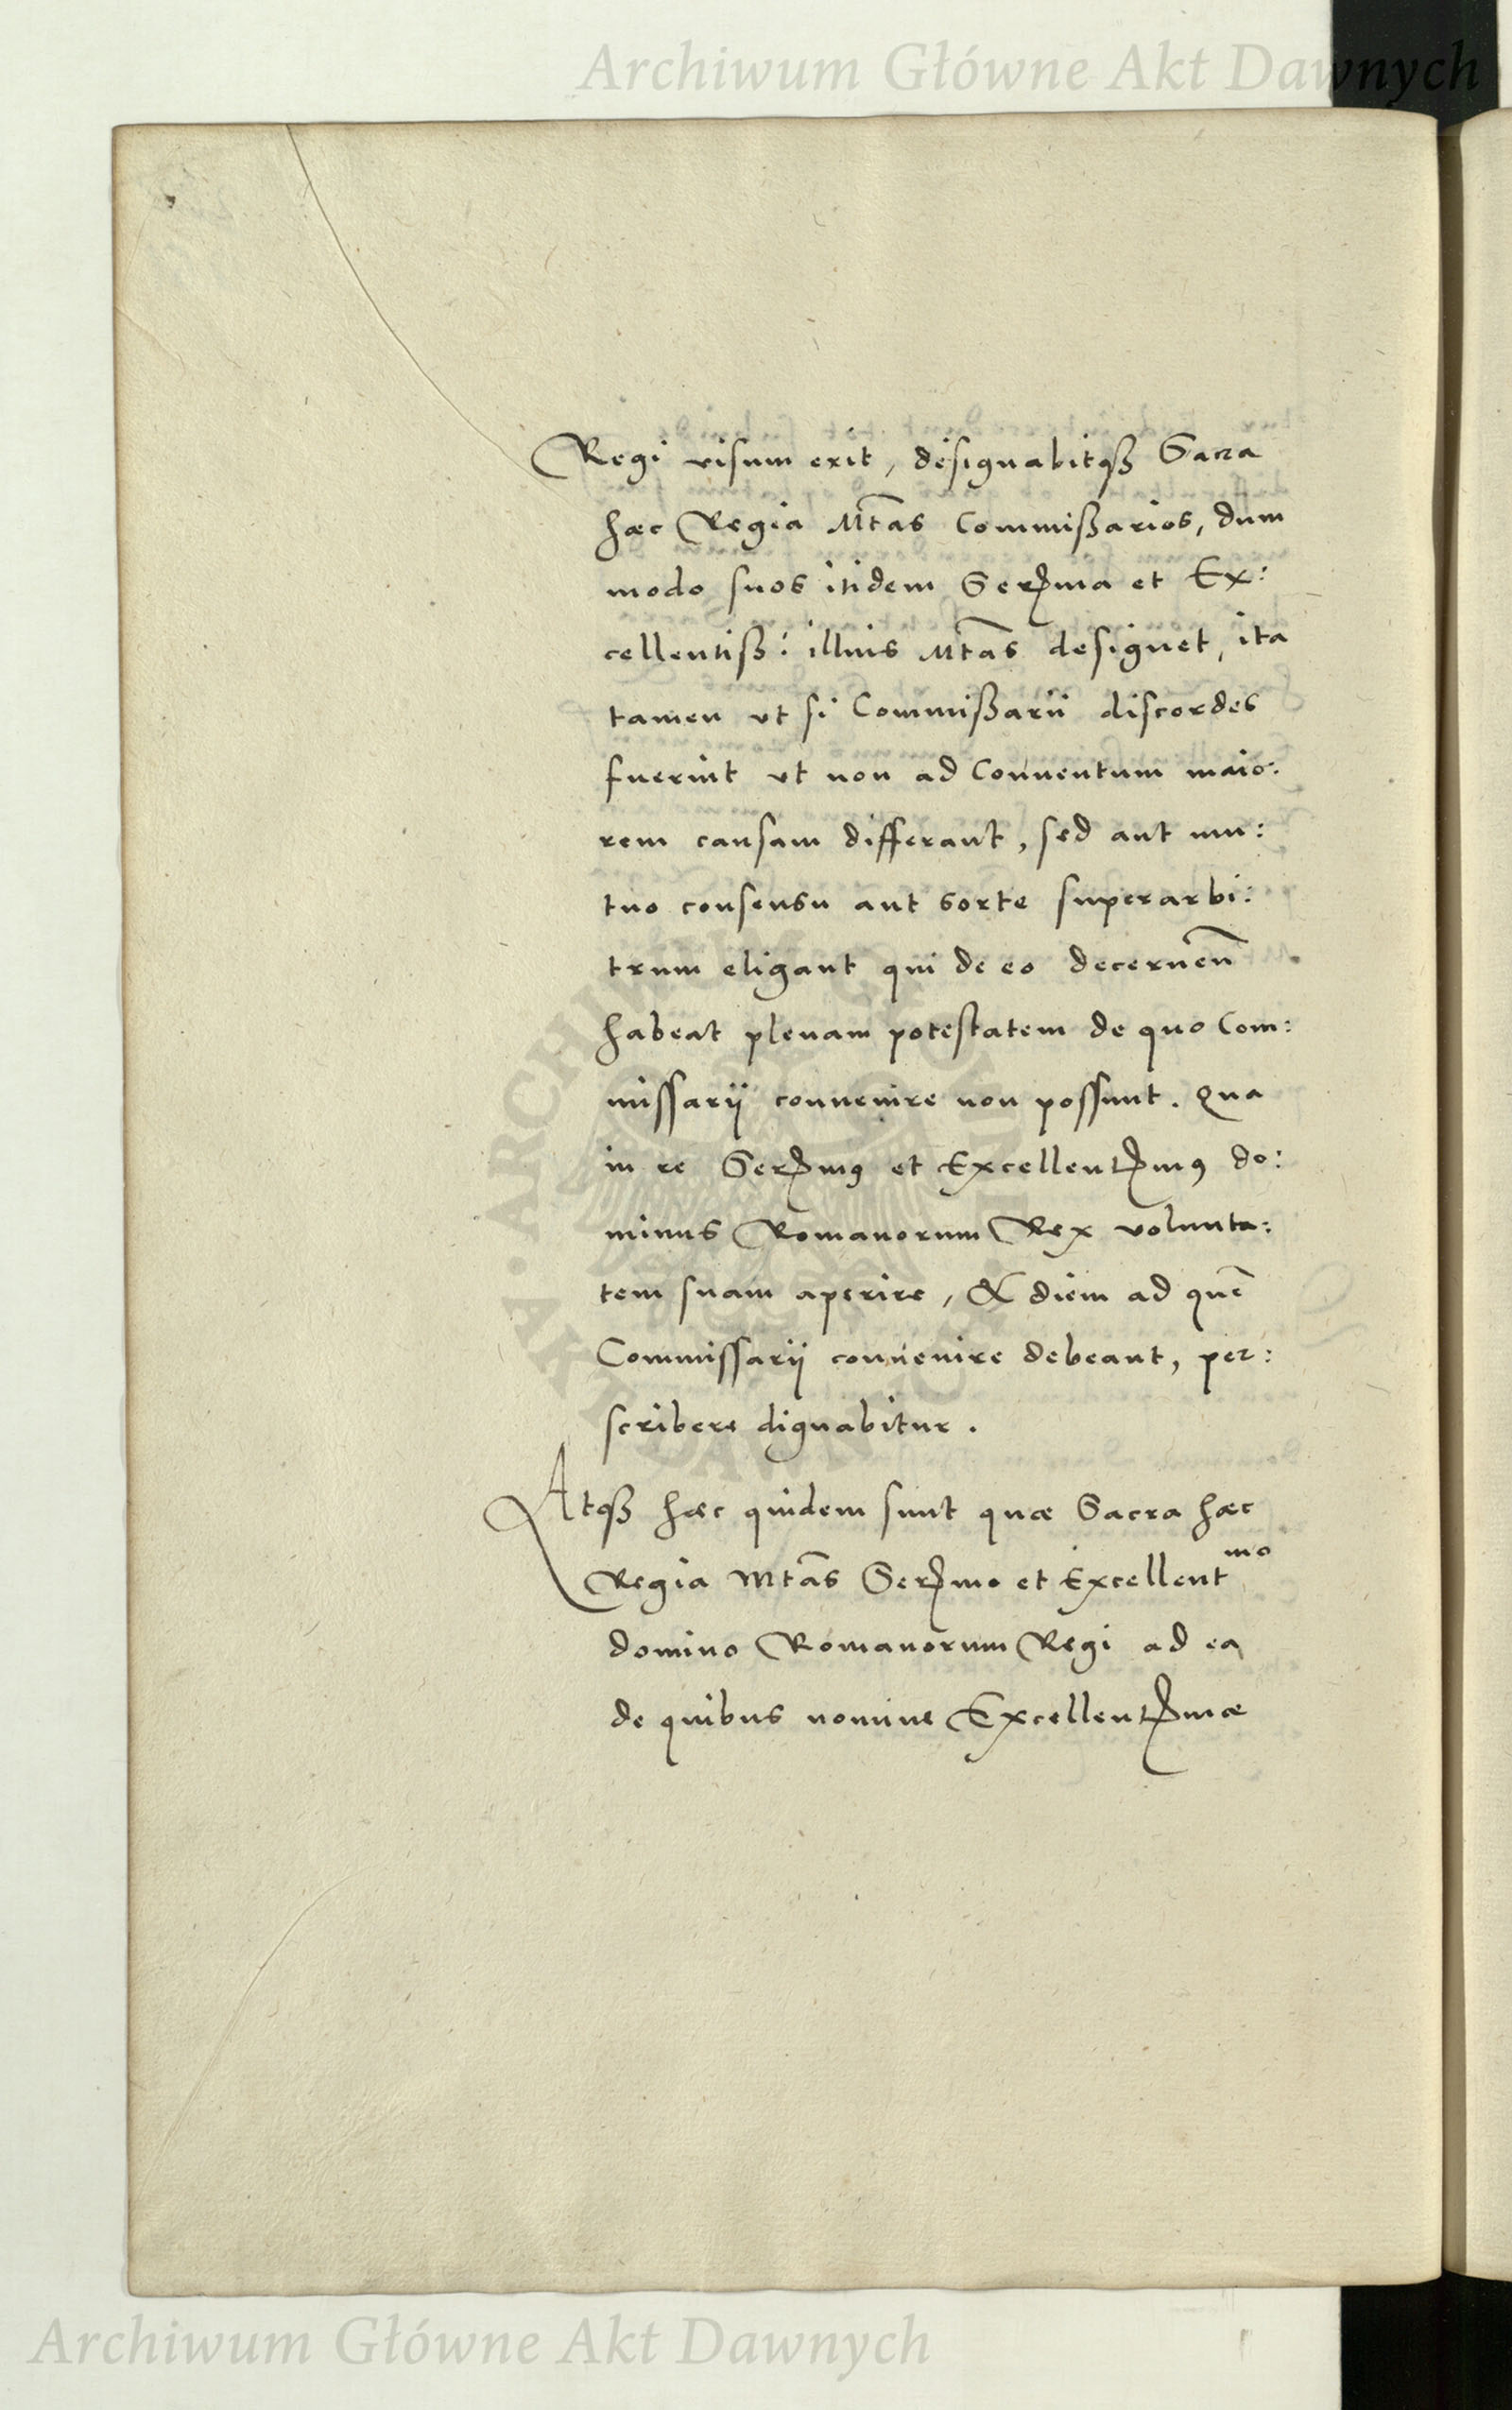 Archiwum Główne Akt Dawnych
Regi visum erit, designabitqꝫ Sacra
hæc Regia Mtãs Commißarios, dum
modo suos itidem Serꝫma et Ex:
cellentiß: illius Mtãs designet, ita
tamen vt si Commißarii discordes
fuerint vt non ad Conventum maio:
rem causam differant, sed aut mu:
tuo consensu aut sorte superarbi:
trum eligant qui de eo decernen̄
habeat plenam potestatem de quo Com:
missarij convenire non possunt. Qua
in re Serꝫmꝰ et Excellentꝫmꝰ do:
minus Romanorum Rex volunta:
tem suam aperire, & diem ad quē
Commissarij convenire debeant, per:
scribere dignabitur.
Atqꝫ hæc quidem sunt quæ Sacra hæc
Regia Mtãs Serꝫmo et Excellent^mo
domino Romanorum Regi ad ea
de quibus nomine Excellentꝫmæ
Archiwum Główne Akt Dawnych